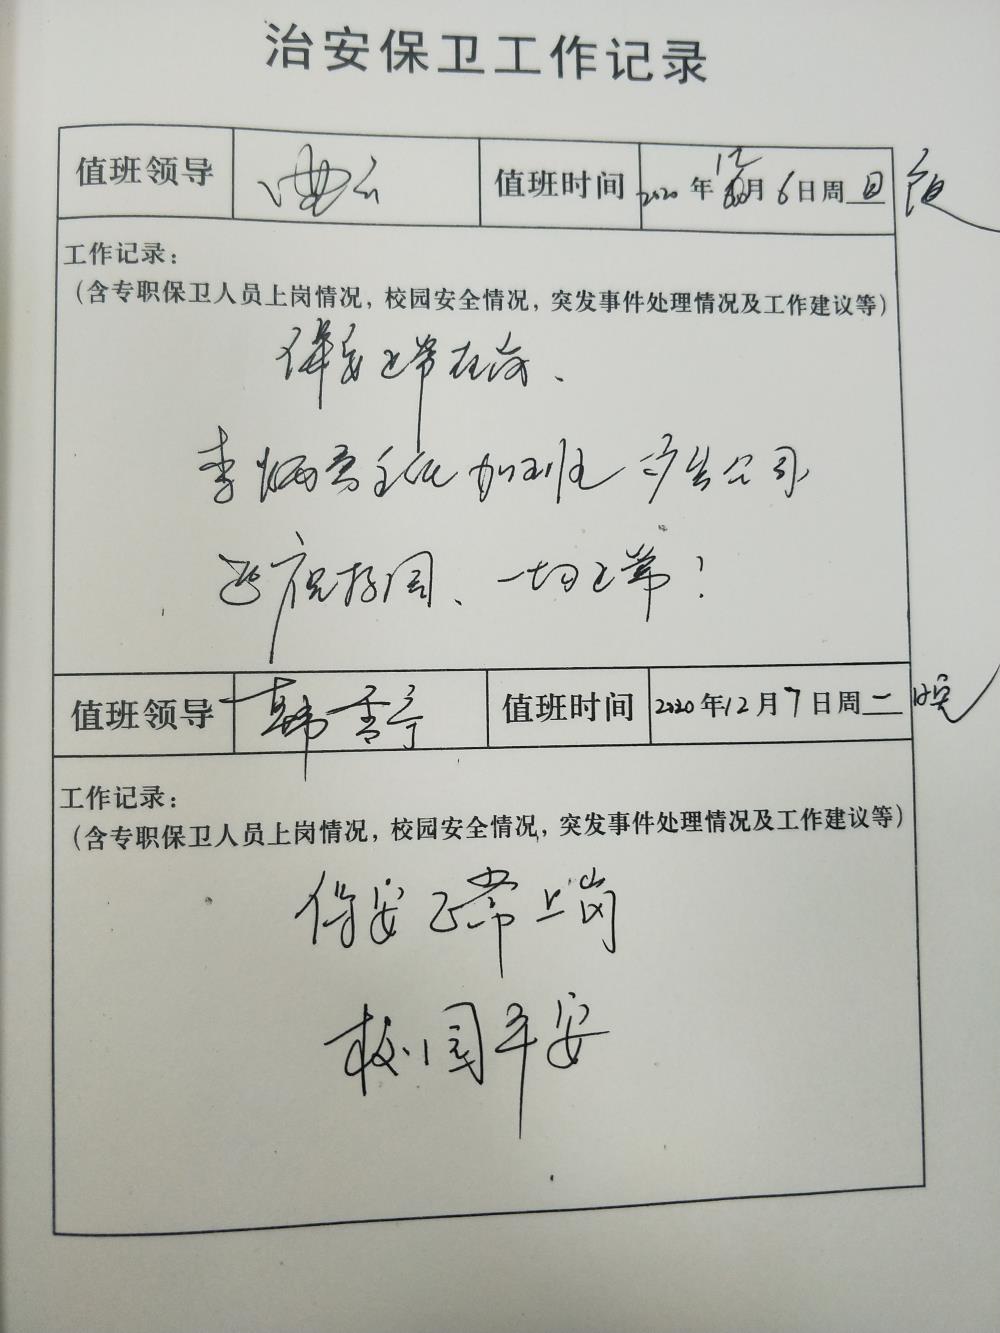 治安保卫工作记录
值班领导 值班时间 2020年12月6日周日
工作记录：
（含专职保卫人员上岗情况，校园安全情况，突发事件处理情况及工作建议等）
保安正常在岗、
李炳 主任加班 广告公司
校园、一切正常！
值班领导 韩香宁 值班时间 2020年12月7日周二晚
工作记录：
（含专职保卫人员上岗情况，校园安全情况，突发事件处理情况及工作建议等）
保安正常上岗
校园平安